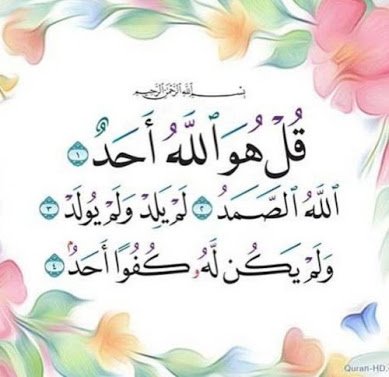 بِسْمِ اللَّهِ الرَّحْمَٰنِ الرَّحِيمِ
قُلْ هُوَ ٱللَّهُ أَحَدٌ ١
ٱللَّهُ ٱلصَّمَدُ ٢ لَمْ يَلِدْ وَلَمْ يُولَدْ ٣
وَلَمْ يَكُن لَّهُۥ كُفُوًا أَحَدٌۢ ٤
Quran-HD